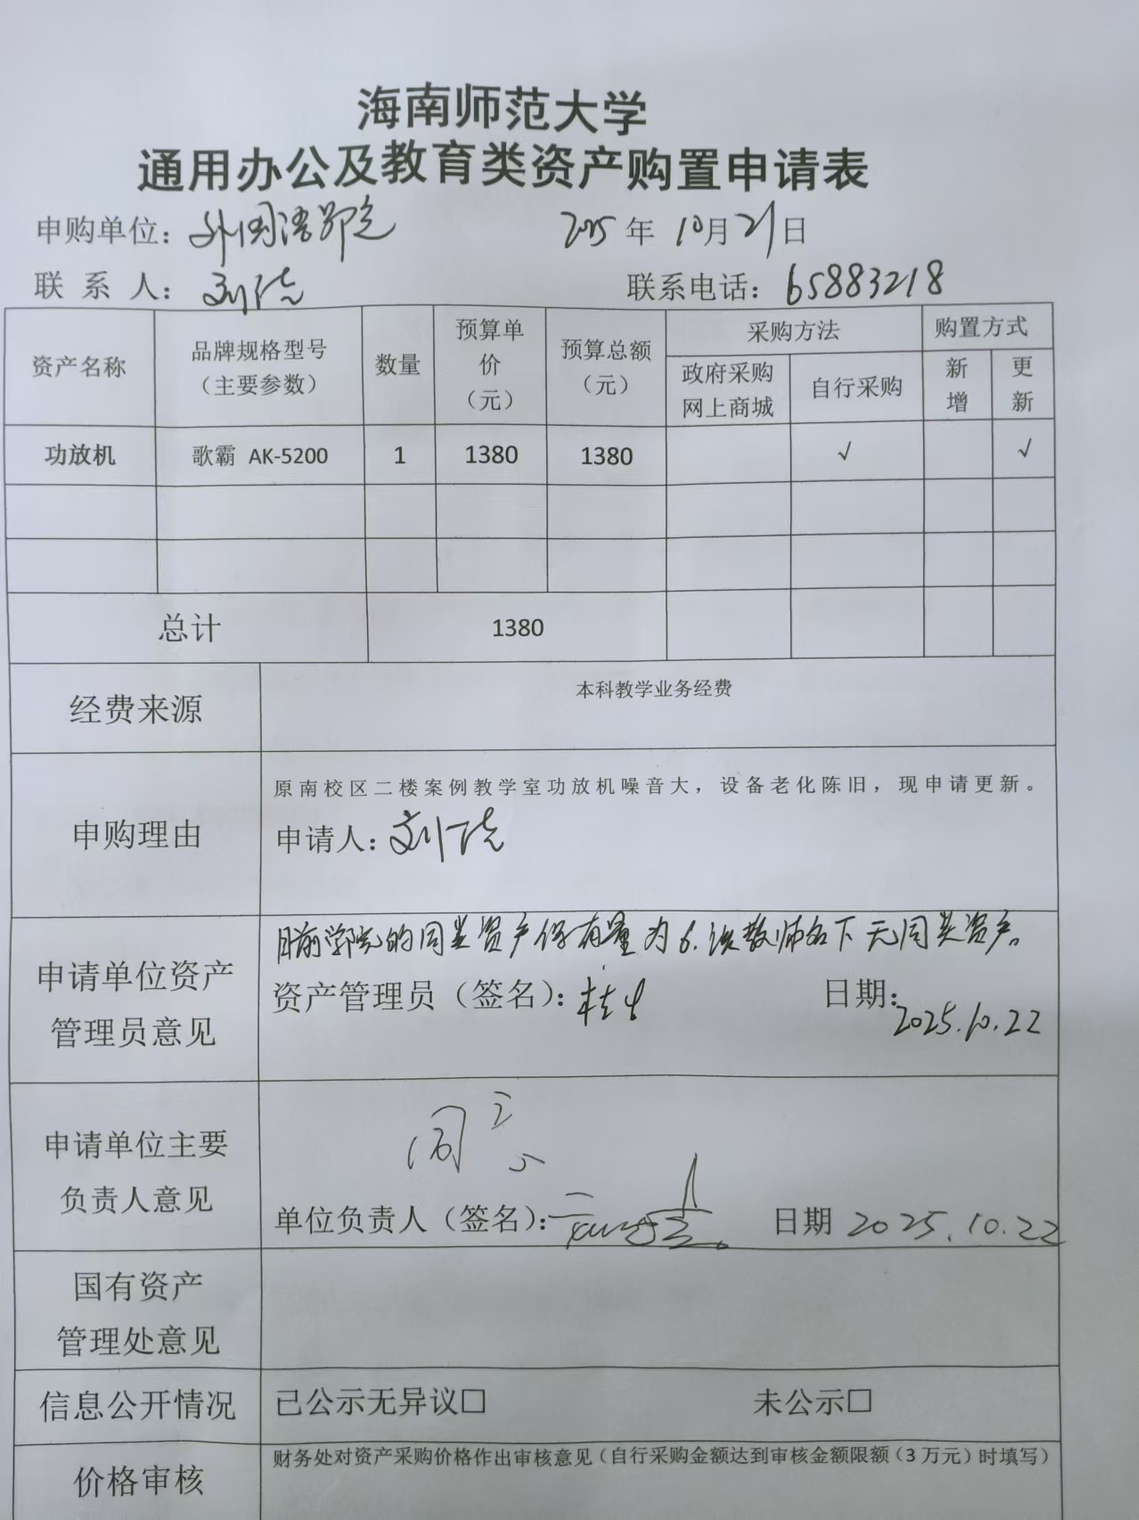 海南师范大学
通用办公及教育类资产购置申请表
申购单位：外国语学院 2025年10月21日
联系人：刘 联系电话：65883218
资产名称 品牌规格型号（主要参数） 数量 预算单价（元） 预算总额（元） 采购方法 购置方式
政府采购网上商城 自行采购 新增 更新
功放机 歌霸 AK-5200 1 1380 1380 √ √
总计 1380
经费来源 本科教学业务经费
申购理由 原南校区二楼案例教学室功放机噪音大，设备老化陈旧，现申请更新。
申请人：刘
申请单位资产管理员意见 目前学院的同类资产保有量为6.该教师名下无同类资产。
资产管理员（签名）： 日期：2025.10.22
申请单位主要负责人意见 同意
单位负责人（签名）： 日期 2025.10.22
国有资产管理处意见
信息公开情况 已公示无异议□ 未公示□
价格审核 财务处对资产采购价格作出审核意见（自行采购金额达到审核金额限额（3万元）时填写）